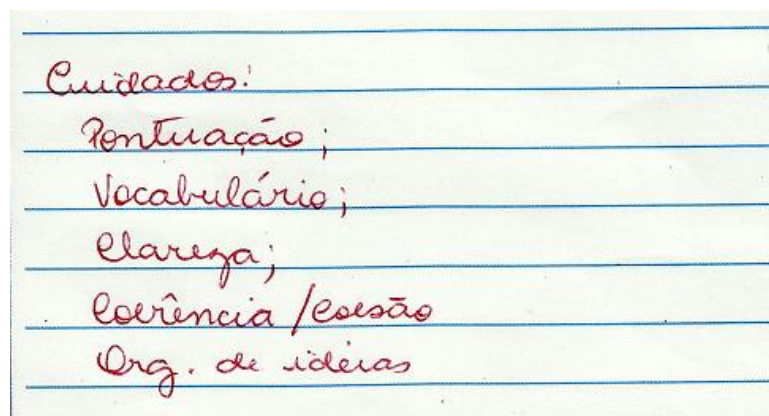 Cuidados:
Pontuação;
Vocabulário;
Clareza;
Coerência/coesão
Org. de idéias